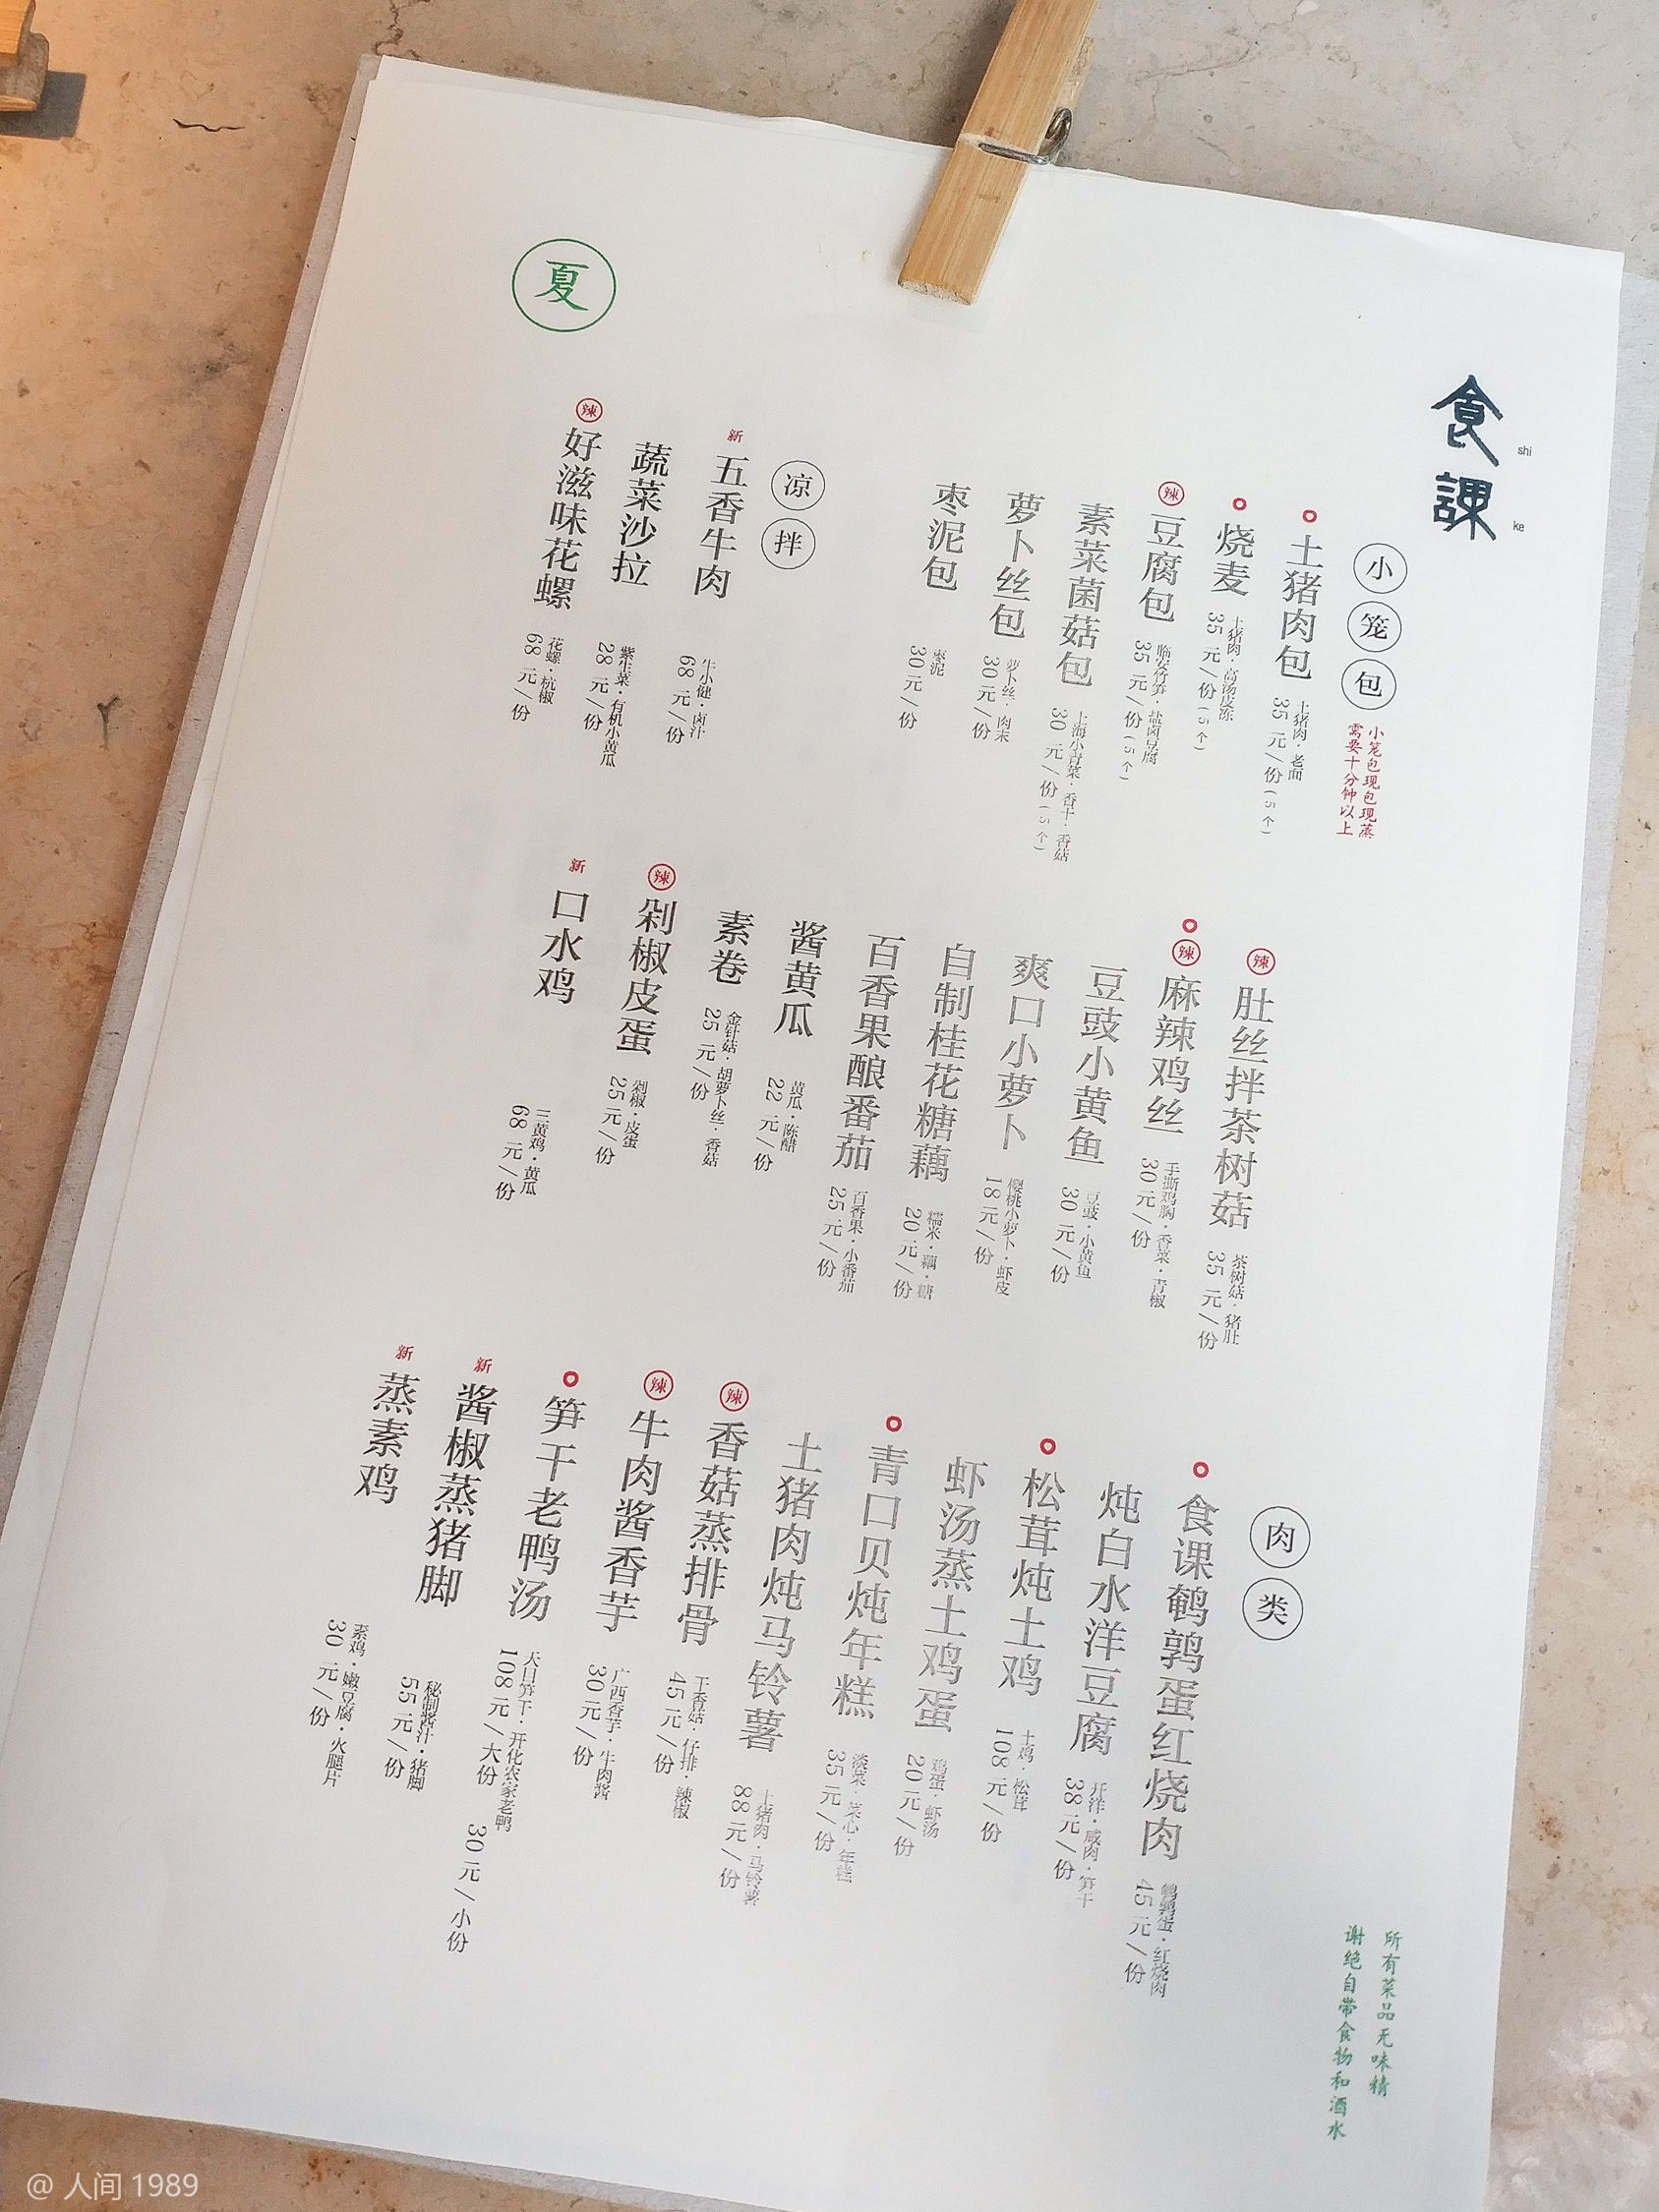 食課
shi
ke
小笼包
小笼包现包现蒸
需要十分钟以上
土猪肉包
土猪肉·老面
35 元/份(5个)
烧麦
土猪肉·高汤皮冻
35 元/份(5个)
辣
豆腐包
临安竹笋·盐卤豆腐
35 元/份(5个)
素菜菌菇包
上海小青菜·香干·香菇
30 元/份(5个)
萝卜丝包
萝卜丝·肉末
30 元/份
枣泥包
枣泥
30 元/份
凉拌
新
五香牛肉
牛小健·卤汁
68 元/份
蔬菜沙拉
紫生菜·有机小黄瓜
28 元/份
辣
好滋味花螺
花螺·杭椒
68 元/份
辣
肚丝拌茶树菇
茶树菇·猪肚
35 元/份
辣
麻辣鸡丝
手撕鸡胸·香菜·青椒
30 元/份
豆豉小黄鱼
豆豉·小黄鱼
30 元/份
爽口小萝卜
樱桃小萝卜·虾皮
18 元/份
自制桂花糖藕
糯米·藕·糖
20 元/份
百香果酿番茄
百香果·小番茄
25 元/份
酱黄瓜
黄瓜·陈醋
22 元/份
素卷
金针菇·胡萝卜丝·香菇
25 元/份
辣
剁椒皮蛋
剁椒·皮蛋
25 元/份
新
口水鸡
三黄鸡·黄瓜
68 元/份
肉类
食课鹌鹑蛋红烧肉
鹌鹑蛋·红烧肉
45 元/份
炖白水洋豆腐
开洋·咸肉·笋干
38 元/份
松茸炖土鸡
土鸡·松茸
108 元/份
虾汤蒸土鸡蛋
鸡蛋·虾汤
20 元/份
青口贝炖年糕
淡菜·菜心·年糕
35 元/份
土猪肉炖马铃薯
土猪肉·马铃薯
88 元/份
辣
香菇蒸排骨
干香菇·仔排·辣椒
45 元/份
辣
牛肉酱香芋
广西香芋·牛肉酱
30 元/份
笋干老鸭汤
天目笋干·开化农家老鸭
108 元/大份 30 元/小份
新
酱椒蒸猪脚
秘制酱汁·猪脚
55 元/份
新
蒸素鸡
素鸡·嫩豆腐·火腿片
30 元/份
所有菜品无味精
谢绝自带食物和酒水
夏
@人间1989